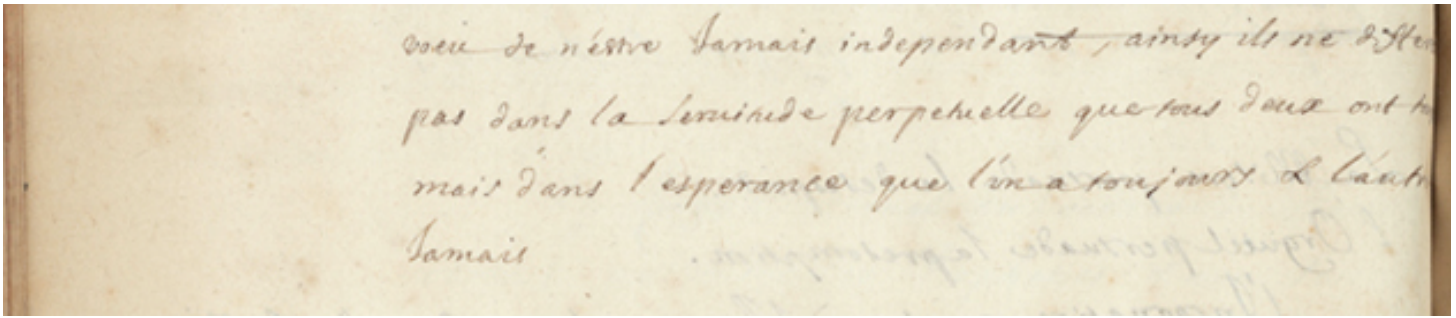 voeu de néstre Jamais independant, ainsy ils ne differ
pas dans la seruitude perpetuelle que tous deux ont
mais dans l'esperance que l'un a toujours & l'autr
Jamais